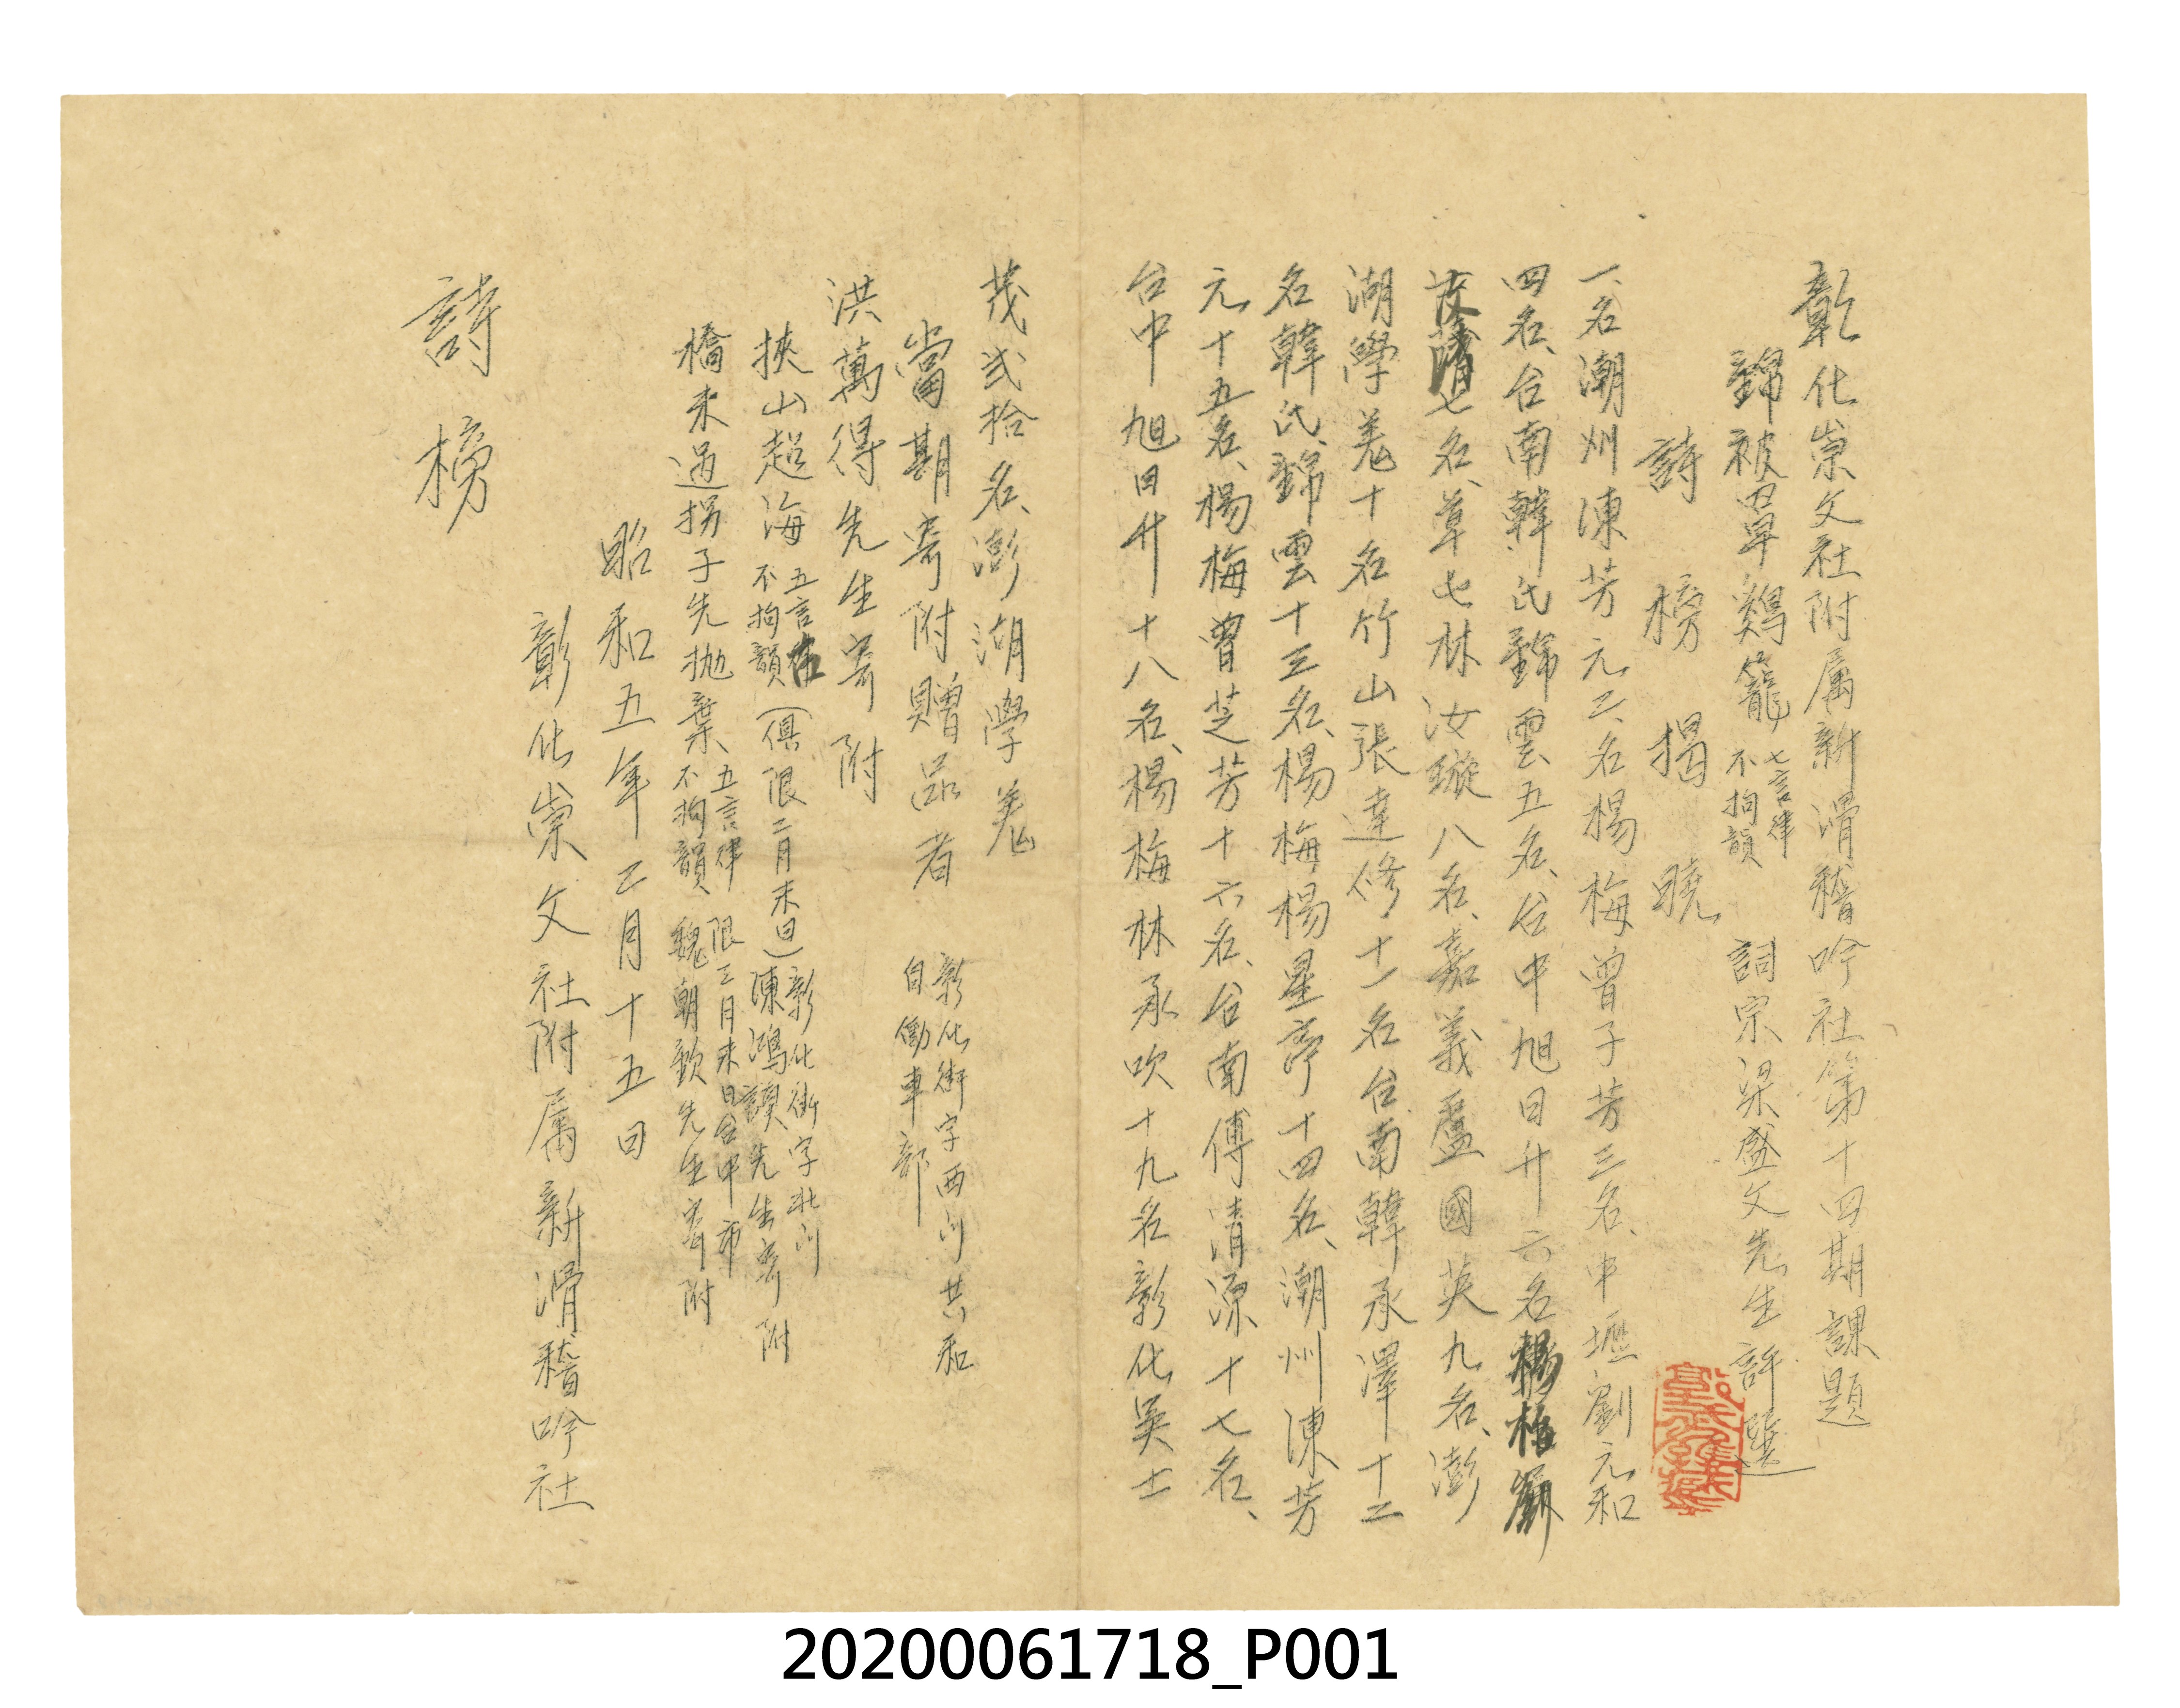 彰化崇文社附属新滑稽吟社第十四期課題
錦被罩鷄籠 七言律 不拘韻 詞宗梁盛文先生許選
詩榜揭曉
一名潮州陳芳元二名楊梅曾子芳三名、中壢劉元和
四名、台南韓氏錦雲五名、台中旭日升六名楊梅
七名、草屯林汝璇八名、嘉義盧國英九名、澎
湖學羗十名竹山張達修、十一名台南韓承澤十二
名韓氏錦雲十三名、楊梅楊星亭十四名、潮州陳芳
元十五名、楊梅曾芝芳十六名、台南傅清源十七名、
台中旭日升十八名、楊梅林承吹十九名彰化吳士
茂弍拾名、澎湖學羗
當期寄附贈品者 彰化街字西門共和自働車部
洪萬得先生寄附
挾山超海 五言律 不拘韻 (俱限二月末日) 彰化街字北門 陳鴻謨先生寄附
橋未過拐子先拋棄 五言律 不拘韻、 限三月末日台中市 魏朝欽先生寄附
昭和五年二月十五日
彰化崇文社附属新滑稽吟社
詩榜
20200061718_P001